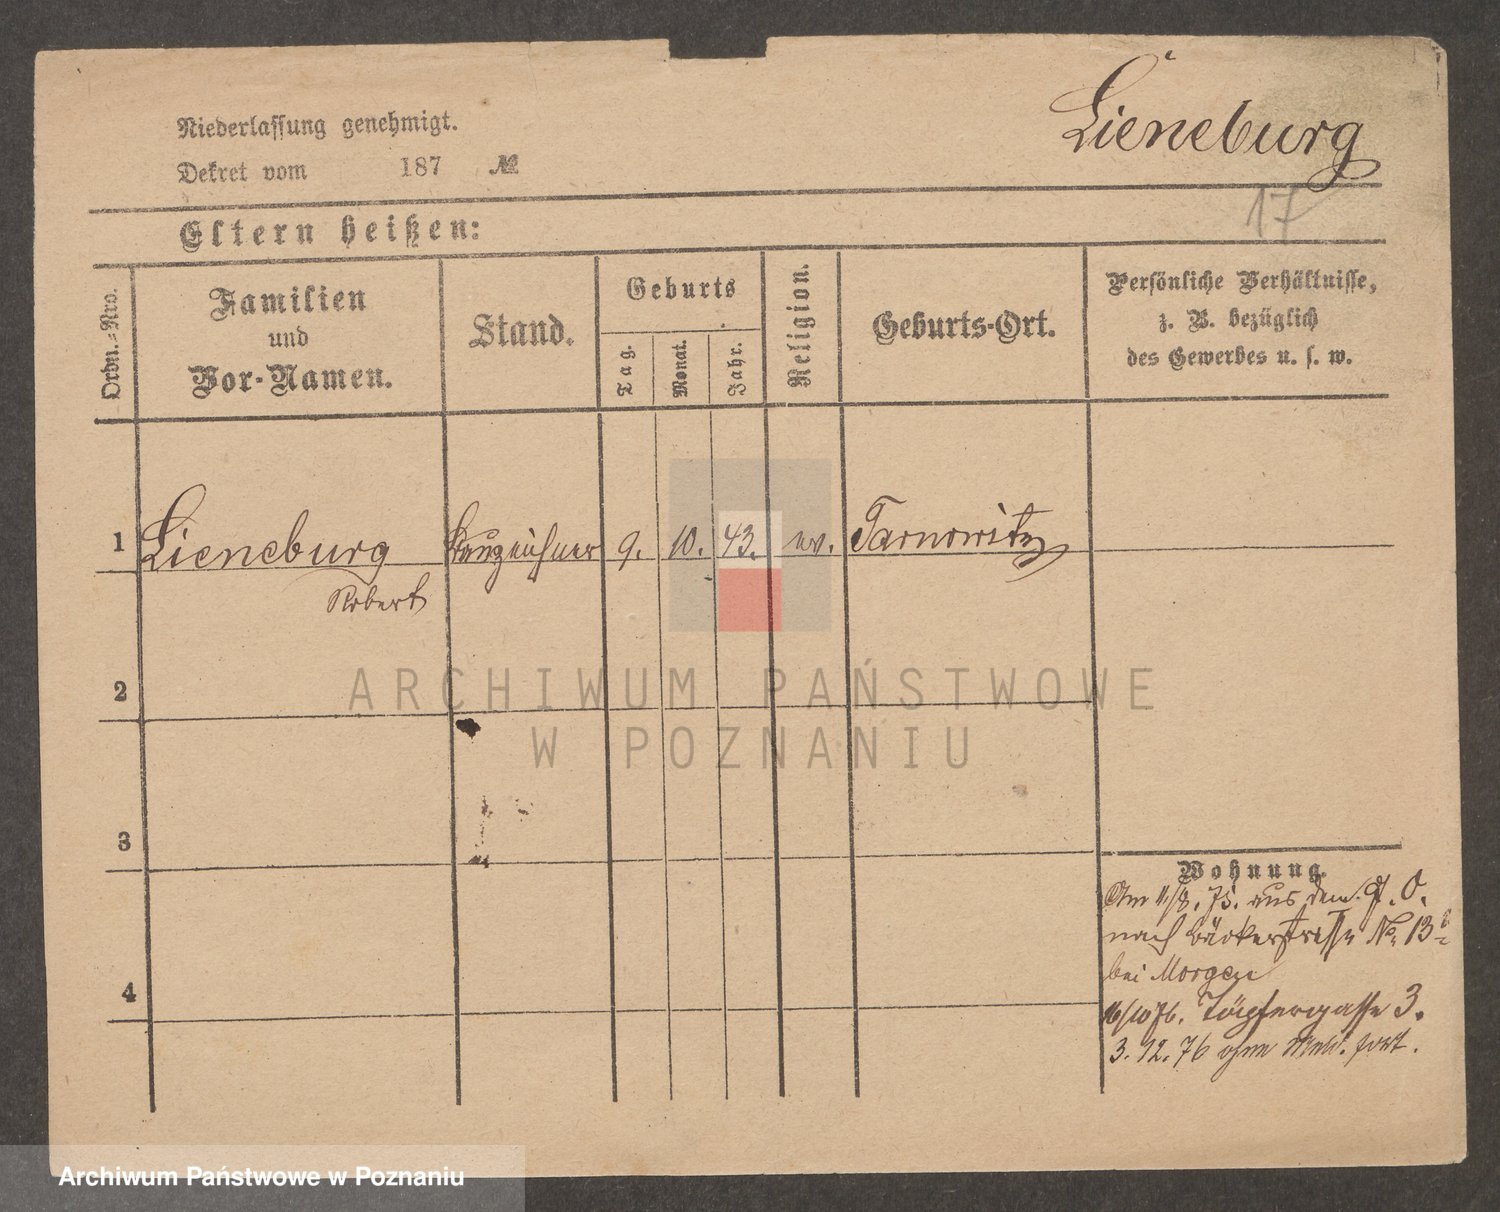 Lieneburg
Niederlassung genehmigt.
Dekret vom 187 №
17
Eltern heißen:
Ordn.-Nro.
Familien
und
Vor-Namen.
Stand.
Geburts
Tag.
Monat.
Jahr.
Religion.
Geburts-Ort.
Persönliche Verhältnisse,
z. B. bezüglich
des Gewerbes u. s. w.
1 Lieneburg Bauzeichner 9. 10. 43. ev. Tarnowitz
Robert
2
ARCHIWUM PAŃSTWOWE
W POZNANIU
3
Wohnung.
Am 11/8. 75. aus dem
nach Bäckerstraße No 13
bei Morgen
16/10 76. Töpfergasse 3.
3. 12. 76 ohne Meld. fort.
4
Archiwum Państwowe w Poznaniu